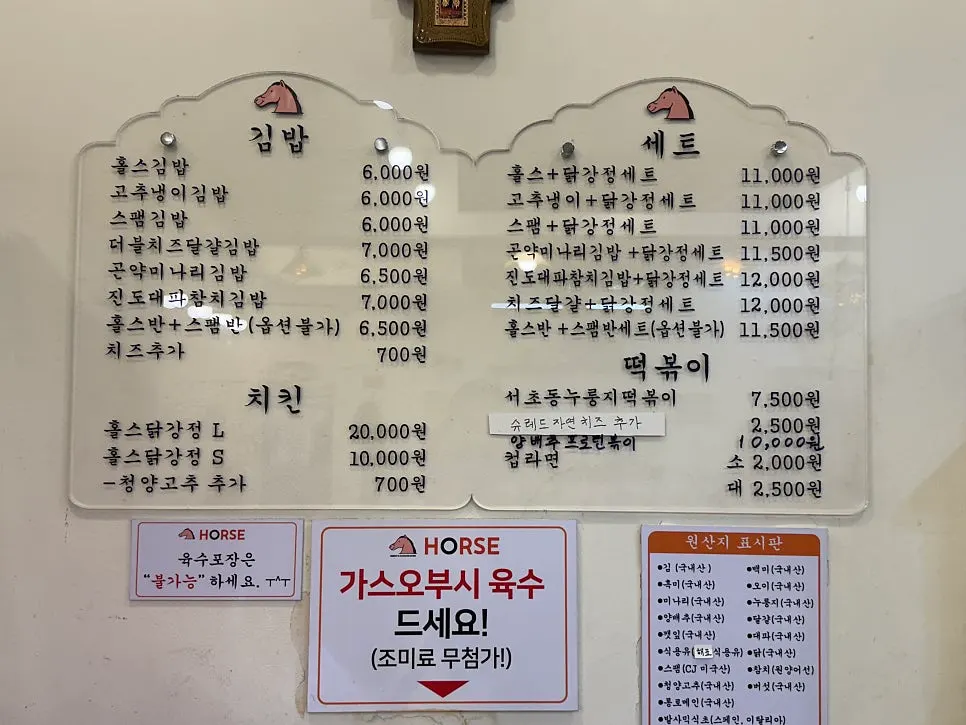 김밥
홀스김밥 6,000원
고추냉이김밥 6,000원
스팸김밥 6,000원
더블치즈달걀김밥 7,000원
곤약미나리김밥 6,500원
진도대파참치김밥 7,000원
홀스반+스팸반(옵션불가) 6,500원
치즈추가 700원
치킨
홀스닭강정 L 20,000원
홀스닭강정 S 10,000원
-청양고추 추가 700원
세트
홀스+닭강정세트 11,000원
고추냉이+닭강정세트 11,000원
스팸+닭강정세트 11,000원
곤약미나리김밥+닭강정세트 11,500원
진도대파참치김밥+닭강정세트 12,000원
치즈달걀+닭강정세트 12,000원
홀스반+스팸반세트(옵션불가) 11,500원
떡볶이
서초동누룽지떡볶이 7,500원
슈레드자연치즈 추가 2,500원
양배추프로틴볶이 10,000원
컵라면 소 2,000원
대 2,500원
HORSE
육수포장은
“불가능”하세요. ㅜ^ㅜ
HORSE
가스오부시 육수
드세요!
(조미료 무첨가!)
원산지 표시판
•김 (국내산)
•흑미(국내산)
•미나리(국내산)
•양배추(국내산)
•깻잎(국내산)
•식용유(해표식용유)
•스팸(CJ 미국산)
•청양고추(국내산)
•통로메인(국내산)
•발사믹식초(스페인, 이탈리아)
•백미(국내산)
•오이(국내산)
•누룽지(국내산)
•달걀(국내산)
•대파(국내산)
•닭(국내산)
•참치(원양어선)
•버섯(국내산)